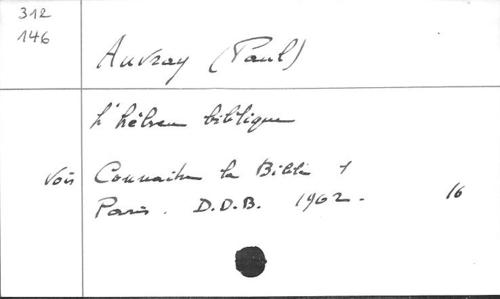 312
146
Auvray (Paul)
L'hébreu biblique
Voir Connaitre la Bible
Paris. D.D.B. 1962. 16